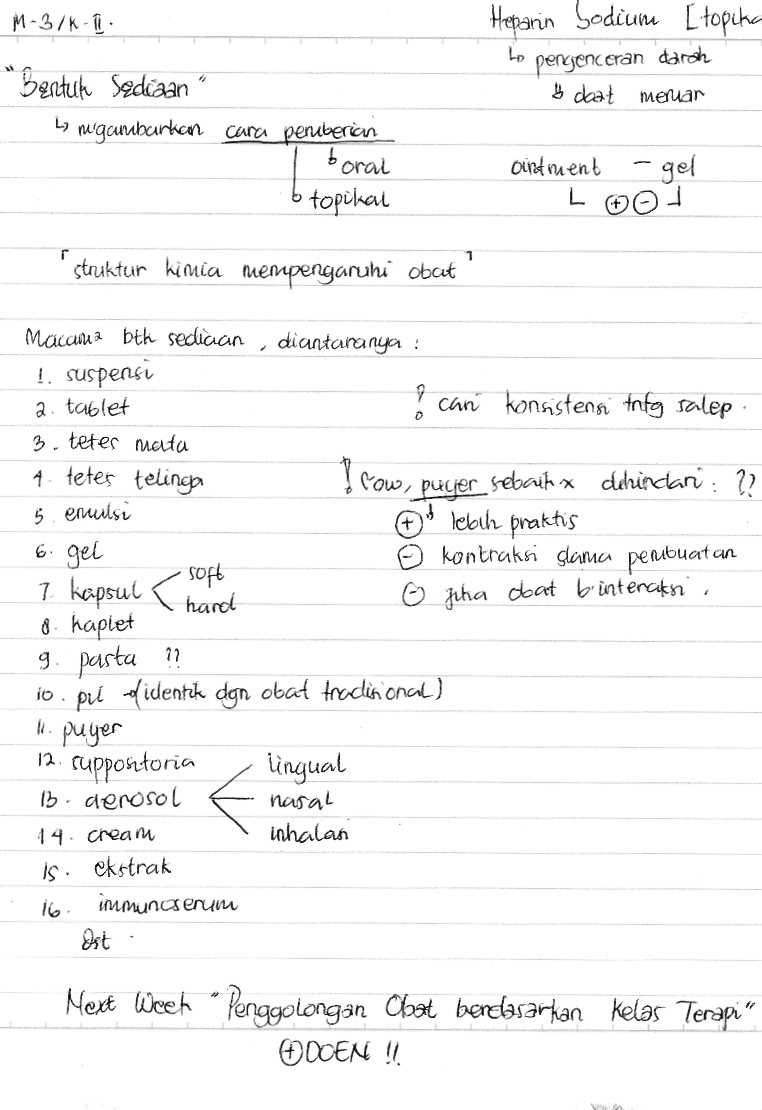 M-3/K-II.
Heparin Sodium [topika
↳ pengenceran darah
↳ obat memar
"Bentuk Sediaan"
↳ m'gambarkan cara pemberian
↳ oral
↳ topikal
ointment - gel
⊕ ⊖
「struktur kimia mempengaruhi obat」
Macam² btk sediaan, diantaranya :
1. suspensi
2. tablet
3. tetes mata
4. tetes telinga
5 emulsi
6. gel
7. kapsul
soft
hard
8. kaplet
9. pasta ??
10. pil → (identik dgn obat tradisional)
11. puyer
12. suppositoria
13. aerosol
lingual
nasal
inhalasi
14. cream
15. ekstrak
16. immunoserum
Dst.
? cari konsistensi tntg salep.
! row, puyer sebaik x dihindari : ??
⊕ lebih praktis
⊖ kontraksi slama pembuatan
⊖ jika obat b'interaksi.
Next Week "Penggolongan Obat berdasarkan Kelas Terapi"
⊕ DOEN !!